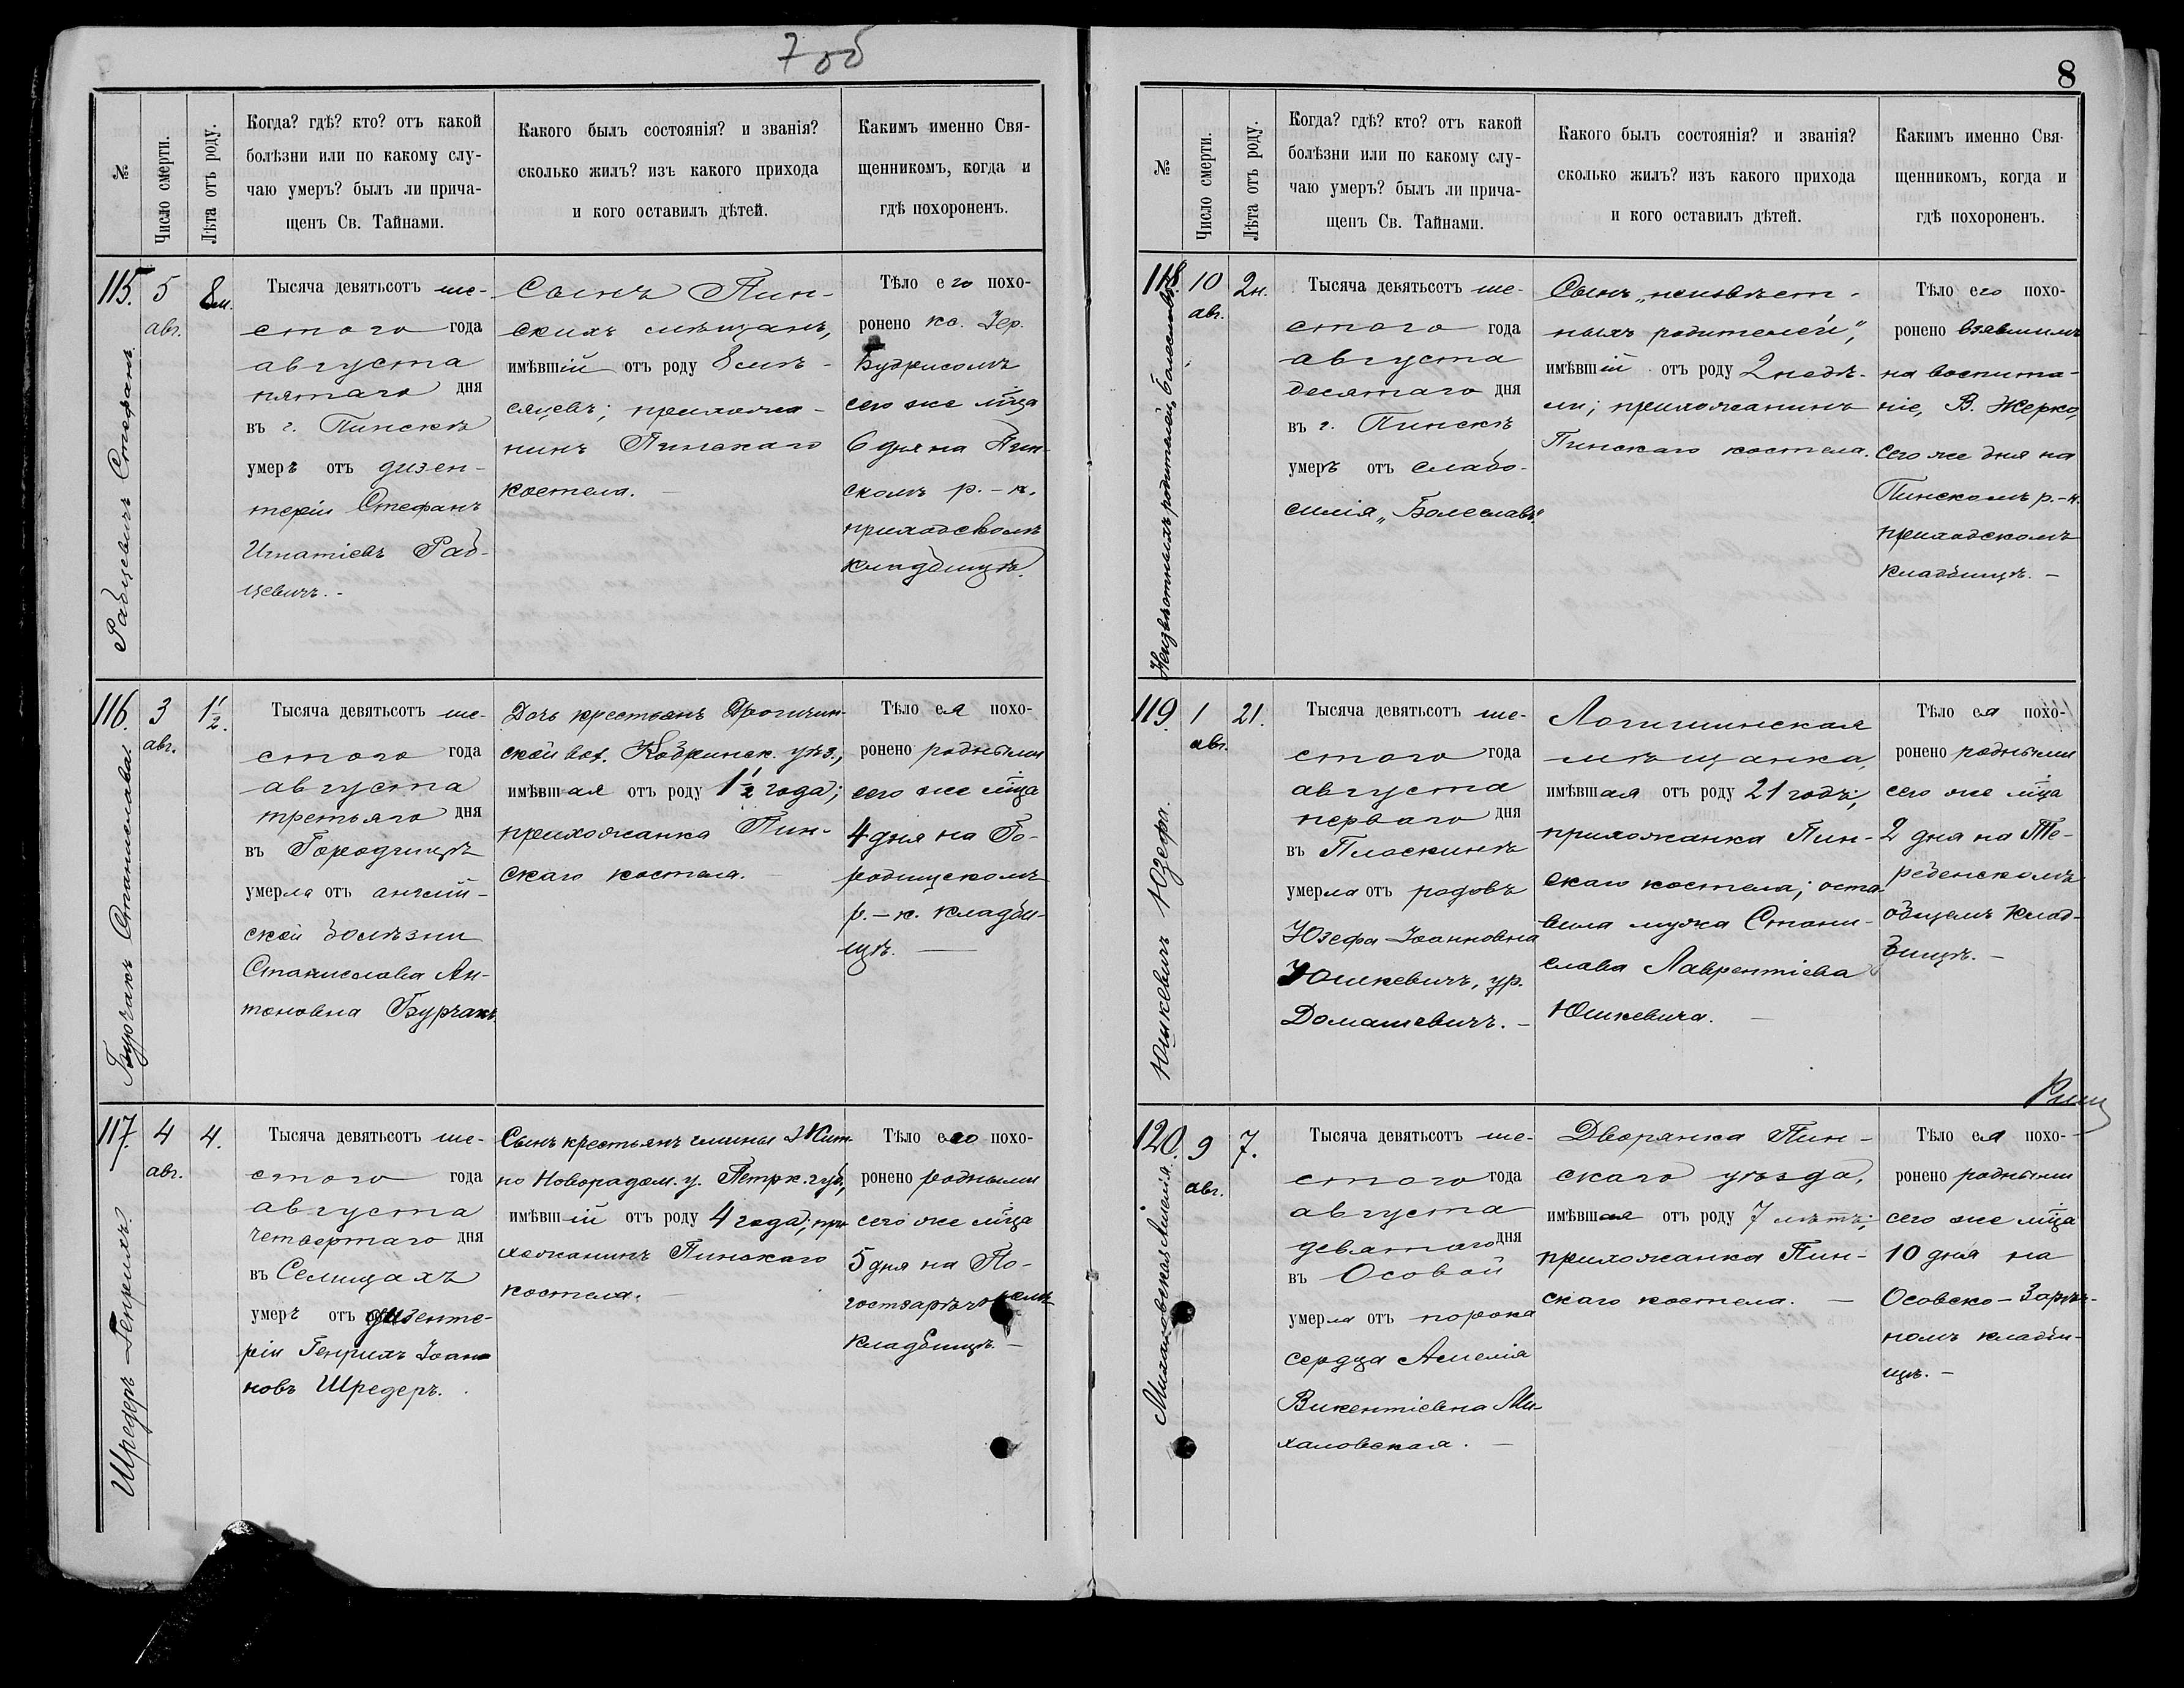 7 об
№
Число смерти.
Лѣта отъ роду.
Когда? гдѣ? кто? отъ какой
болѣзни или по какому слу-
чаю умеръ? былъ ли прича-
щенъ Св. Тайнами.
Какого былъ состоянія? и званія?
сколько жилъ? изъ какого прихода
и кого оставилъ дѣтей.
Какимъ именно Свя-
щенникомъ, когда и
гдѣ похороненъ.
115.
Рабцевичъ Стефанъ.
5
авг.
8 м.
Тысяча девятьсотъ ше-
стого года
августа
пятаго дня
въ г. Пинскѣ
умеръ отъ дизен-
теріи Стефанъ
Игнатіевъ Раб-
цевичъ. -
Сынъ Пин-
скихъ мѣщанъ,
имѣвшій отъ роду 8 мѣ-
сяцевъ; прихожа-
нинъ Пинскаго
костела. -
Тѣло его похо-
ронено кс. Іер.
Будрисомъ
сего же мѣца
6 дня на Пин-
скомъ р.-к.
приходскомъ
кладбищѣ.
116.
Бурчакъ Станислава.
3
авг.
1 1/2.
Тысяча девятьсотъ ше-
стого года
августа
третьяго дня
въ Городищѣ
умерла отъ англій-
ской болѣзни
Станислава Ан-
тоновна Бурчакъ.
Дочь крестьянъ Дрогичин-
ской вол. Кобринск. уѣз.,
имѣвшая отъ роду 1 1/2 года;
прихожанка Пин-
скаго костела. -
Тѣло ея похо-
ронено родными
сего же мѣца
4 дня на Го-
родищскомъ
р.-к. кладби-
щѣ. —
117.
Шредеръ Генрихъ.
4
авг.
4.
Тысяча девятьсотъ ше-
стого года
августа
четвертаго дня
въ Селищахъ
умеръ отъ дизенте-
ріи Генрихъ Іоан-
новъ Шредеръ.
Сынъ крестьянъ гмины
Новорадом. у. Петрк. губ.,
имѣвшій отъ роду 4 года; при-
хожанинъ Пинскаго
костела. -
Тѣло его похо-
ронено родными
сего же мѣца
5 дня на По-
кладбищѣ. -
8
№
Число смерти.
Лѣта отъ роду.
Когда? гдѣ? кто? отъ какой
болѣзни или по какому слу-
чаю умеръ? былъ ли прича-
щенъ Св. Тайнами.
Какого былъ состоянія? и званія?
сколько жилъ? изъ какого прихода
и кого оставилъ дѣтей.
Какимъ именно Свя-
щенникомъ, когда и
гдѣ похороненъ.
118.
Неизвѣстныхъ родителей, Болеславъ.
10
авг.
2 н.
Тысяча девятьсотъ ше-
стого года
августа
десятаго дня
въ г. Пинскѣ
умеръ отъ слабо-
силія „Болеславъ".
Сынъ „неизвѣст-
ныхъ родителей",
имѣвшій отъ роду 2 недѣ-
ли; прихожанинъ
Пинскаго костела.
Тѣло его похо-
ронено взявшимъ
на воспита-
ніе, В. Жерко,
сего же дня на
Пинскомъ р.-к.
приходскомъ
кладбищѣ. -
119.
Юшкевичъ Юзефа.
1
авг.
21.
Тысяча девятьсотъ ше-
стого года
августа
перваго дня
въ Плоскинѣ
умерла отъ родовъ
Юзефа Іоанновна
Юшкевичъ, ур.
Домашевичъ. -
Логишинская
мѣщанка,
имѣвшая отъ роду 21 годъ;
прихожанка Пин-
скаго костела; оста-
вила мужа Стани-
слава Лаврентіева
Юшкевича. -
Тѣло ея похо-
ронено родными
сего же мѣца
2 дня на Те-
ребенскомъ
общемъ клад-
бищѣ. -
120.
Михаловская Амелія
9
авг.
7.
Тысяча девятьсотъ ше-
стого года
августа
девятаго дня
въ Особой
умерла отъ порока
сердца Амелія
Викентіевна Ми-
халовская. -
Дворянка Пин-
скаго уѣзда,
имѣвшая отъ роду 7 лѣтъ;
прихожанка Пин-
скаго костела. -
Тѣло ея похо-
ронено родными
сего же мѣца
10 дня на
Осовско-Зарѣч-
номъ кладби-
щѣ. -